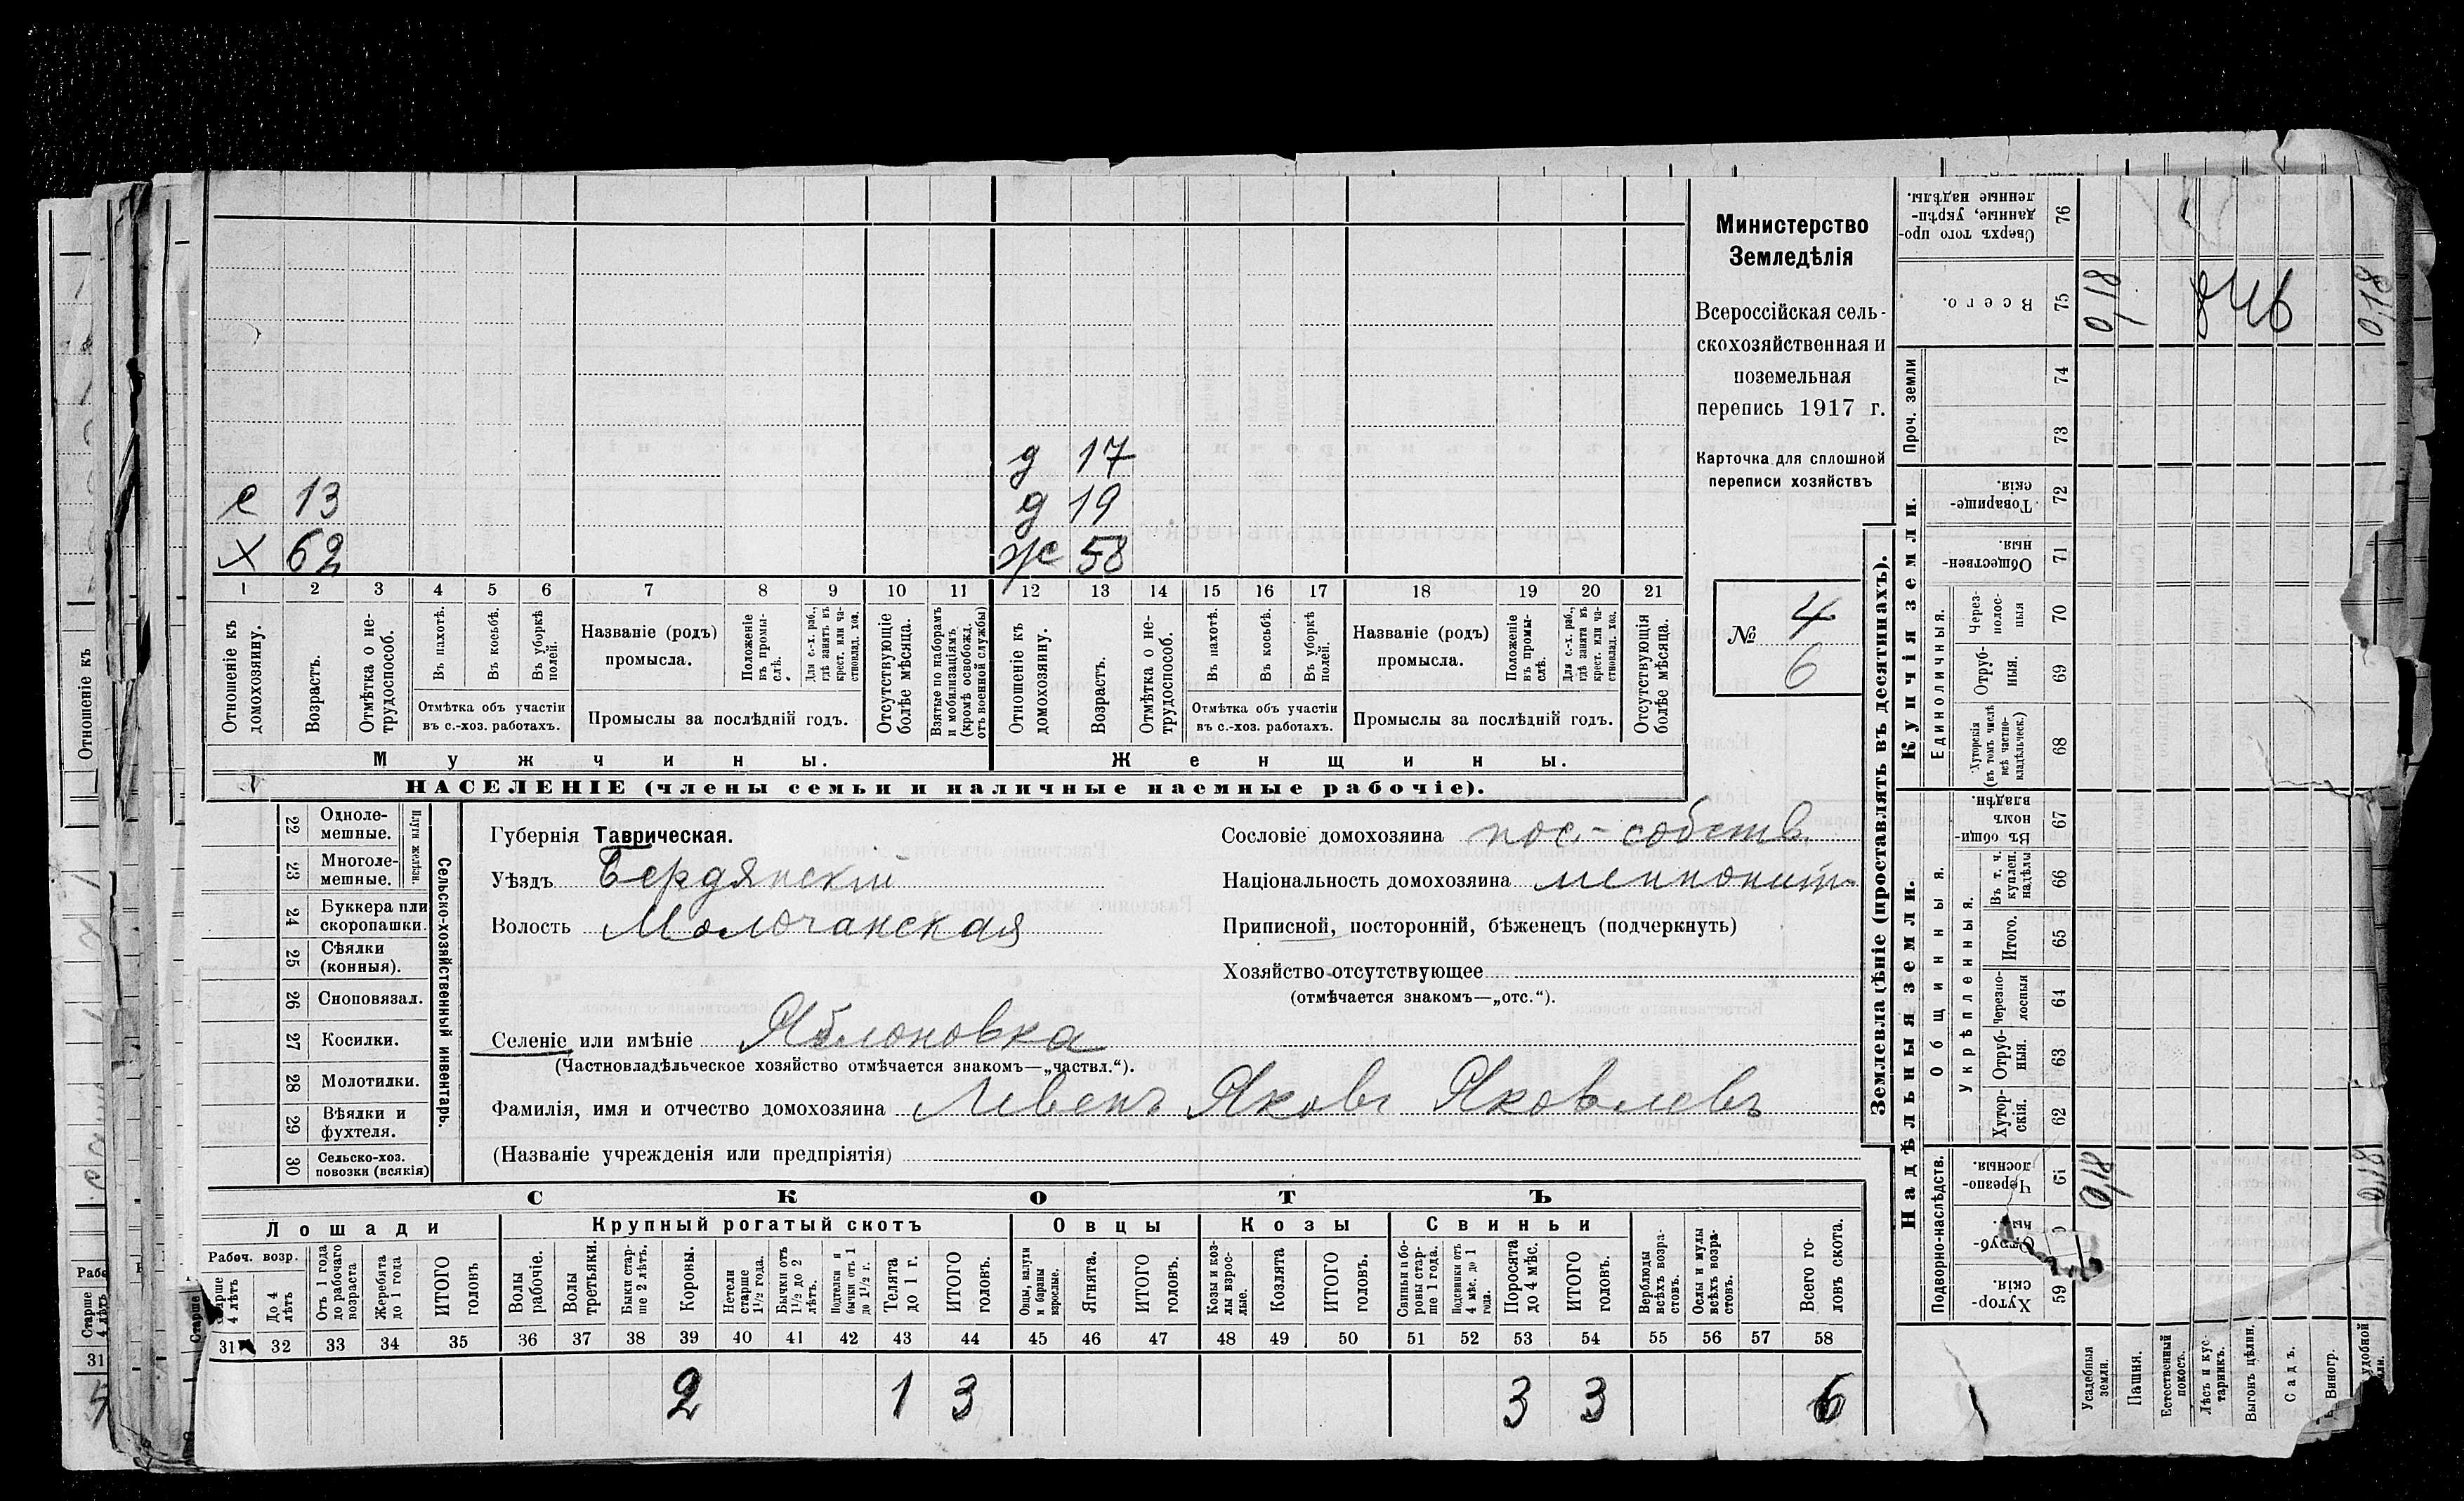 д 17
с 13 д 19
х 62 ж 58
1 2 3 4 5 6 7 8 9 10 11 12 13 14 15 16 17 18 19 20 21
Отношеніе къ домохозяину.
Возрастъ.
Отмѣтка о не-
трудоспособ.
Въ пахотѣ.
Въ косьбѣ.
Въ уборкѣ
полей.
Отмѣтка объ участіи
въ с.-хоз. работахъ.
Названіе (родъ)
промысла.
Положеніе
въ промы-
слѣ.
Для с.-х. раб.,
гдѣ занятъ въ
крест. или ча-
стновлад. хоз.
Промыслы за послѣдній годъ.
Отсутствующіе
болѣе мѣсяца.
Взятые по наборамъ
и мобилизаціямъ
(кромѣ освобожд.
отъ военной службы)
Отношеніе къ
домохозяину.
Возрастъ.
Отмѣтка о не-
трудоспособ.
Въ пахотѣ.
Въ косьбѣ.
Въ уборкѣ
полей.
Отмѣтка объ участіи
въ с.-хоз. работахъ.
Названіе (родъ)
промысла.
Положеніе
въ промы-
слѣ.
Для с.-х. раб.,
гдѣ занята въ
крест. или ча-
стновлад. хоз.
Промыслы за послѣдній годъ.
Отсутствующія
болѣе мѣсяца.
Мужчины. Женщины.
НАСЕЛЕНІЕ (члены семьи и наличные наемные рабочіе).
Министерство
Земледѣлія
Всероссійская сель-
скохозяйственная и
поземельная
перепись 1917 г.
Карточка для сплошной
переписи хозяйствъ
№ 4
6
22 Одноле-
мешные.
23 Многоле-
мешные.
Плуги желѣзн.
24 Буккера или
скоропашки.
25 Сѣялки
(конныя).
26 Сноповязал.
27 Косилки.
28 Молотилки.
29 Вѣялки и
фухтеля.
30 Сельско-хоз.
повозки (всякія)
Сельско-хозяйственный инвентарь.
Губернія Таврическая.
Уѣздъ Бердянскій
Волость Молочанская
Селеніе или имѣніе Яблоновка
(Частновладѣльческое хозяйство отмѣчается знакомъ—„частвл.“).
Фамилія, имя и отчество домохозяина Левенъ Яковъ Яковлевъ
(Названіе учрежденія или предпріятія)
Сословіе домохозяина пос.-собств.
Національность домохозяина меннонит.
Приписной, посторонній, бѣженецъ (подчеркнуть)
Хозяйство отсутствующее
(отмѣчается знакомъ—„отс.“).
СКОТЪ
Лошади Крупный рогатый скотъ Овцы Козы Свиньи
Рабоч. возр.
Старше
4 лѣтъ
До 4
лѣтъ
Отъ 1 года
до рабочаго
возраста
Жеребята
до 1 года
ИТОГО
головъ
Волы
рабочіе.
Волы
третьяки.
Быки стар-
ше 2 лѣтъ.
Коровы.
Нетели
старше
1½ года.
Бычки отъ
1½ до 2
лѣтъ.
Подтелки и
бычки отъ 1
до 1½ г.
Телята
до 1 г.
ИТОГО
головъ.
Овцы, валухи
и бараны
взрослые.
Ягнята.
ИТОГО
головъ.
Козы и коз-
лы взрос-
лые.
Козлята
ИТОГО
головъ.
Свиньи и бо-
ровы стар-
ше 1 года.
Подсвинки отъ
4 мѣс. до 1
года.
Поросята
до 4 мѣс.
ИТОГО
головъ.
Верблюды
всѣхъ возра-
стовъ.
Ослы и мулы
всѣхъ возра-
стовъ.
Всего го-
ловъ скота.
31 32 33 34 35 36 37 38 39 40 41 42 43 44 45 46 47 48 49 50 51 52 53 54 55 56 57 58
2 1 3 3 3 6
Землевладѣніе (проставлять въ десятинахъ).
Купчія земли.
Надѣльныя земли.
Сверхъ того про-
данные, укрѣп-
ленные надѣлы.
76
Всего.
75
0,18
0,18
Проч. земли
74
73
Товарище-
скія.
72
Обществен-
ныя.
71
Единоличныя.
Через-
полос-
ныя
70
Отруб-
ныя.
69
Хуторскія
(въ томъ числѣ
всѣ частно-
владѣльческ.)
68
Общинныя.
Въ общи
номъ
владѣн.
67
Укрѣпленныя.
Въ т. ч.
куплен.
надѣлы
66
Итого.
65
Черезпо-
лосныя
64
Отруб-
ныя.
63
Хутор-
скія.
62
Подворно-наслѣдств.
Черезпо-
лосныя.
61
0,18
0,18
Отруб-
ныя.
Хутор-
скія.
59
Усадебныя
земли.
Пашня.
Естественный
покосъ.
Лѣсъ и кус-
тарникъ.
Выгонъ цѣлин.
Садъ.
Виногр.
удобной
Отношеніе къ
Старше
4 лѣтъ
31